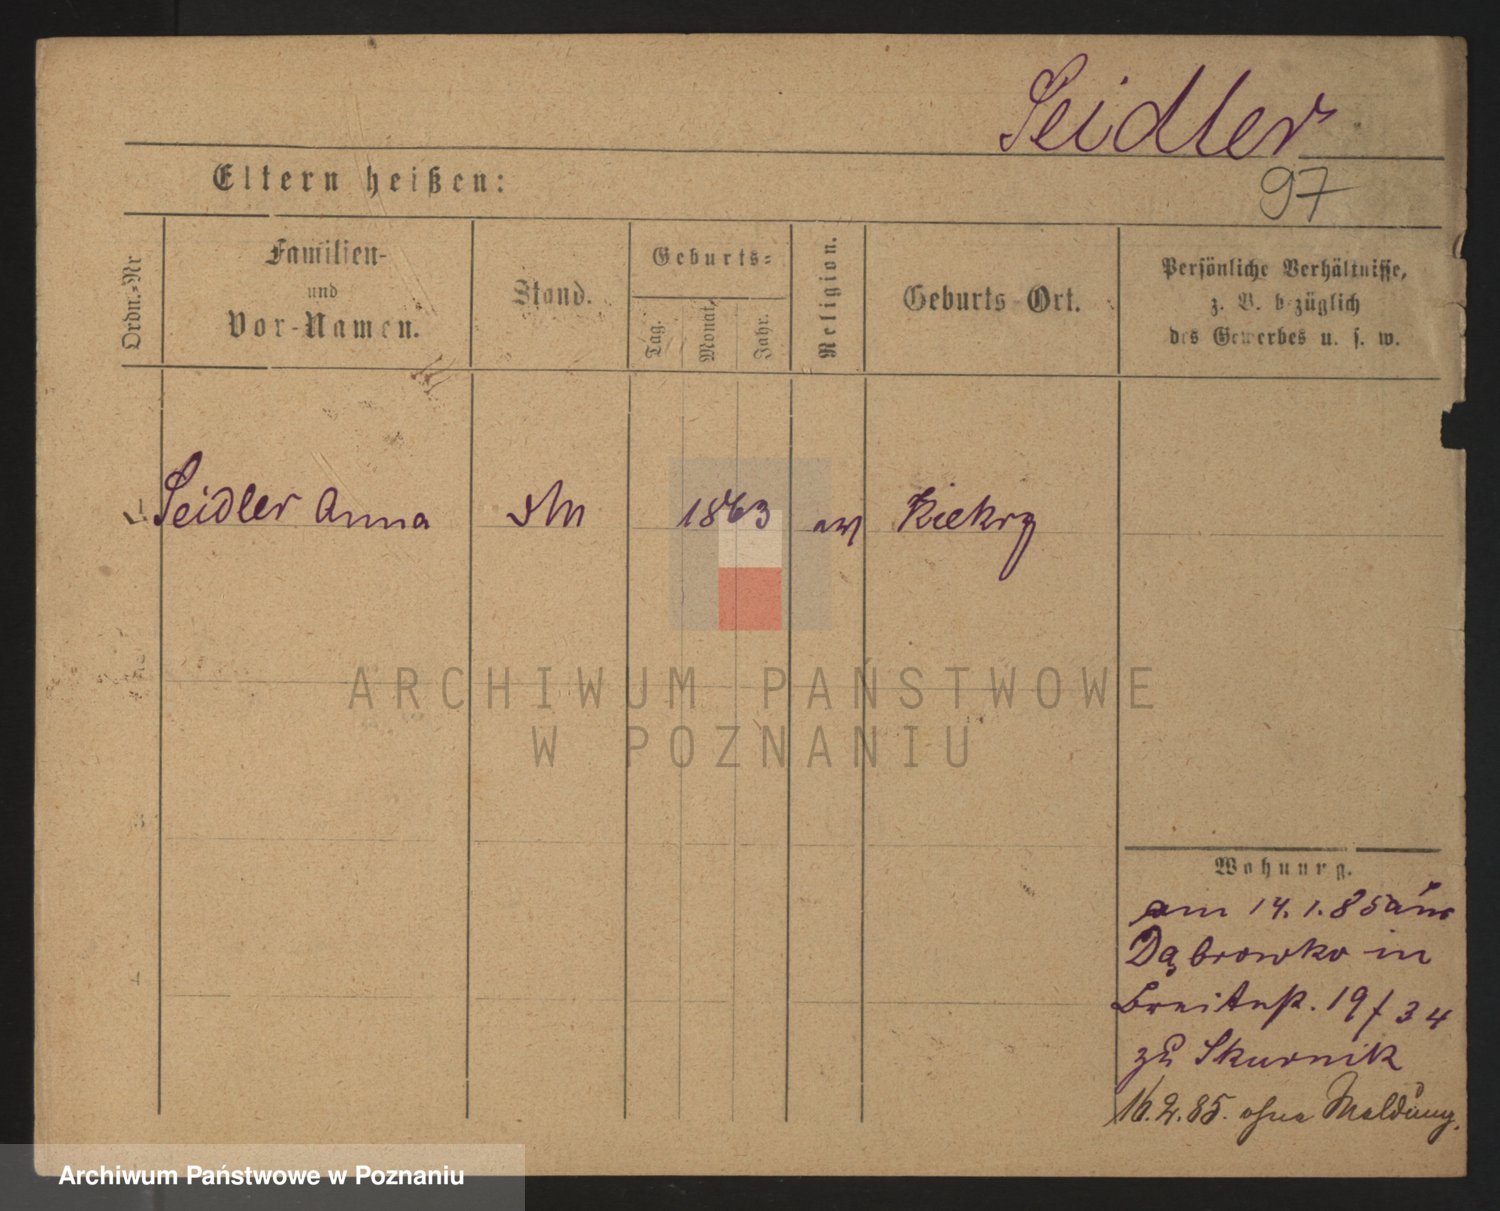 Seidler
Eltern heißen:
97
Ordn.-Nr
Familien-
und
Vor-Namen.
Stand.
Geburts-
Tag.
Monat.
Jahr.
Religion.
Geburts-Ort.
Persönliche Verhältnisse,
z. B. bezüglich
des Gewerbes u. s. w.
Seidler Anna
1863
ev
Kiekrz
ARCHIWUM PAŃSTWOWE
W POZNANIU
3
Wohnung.
am 14. 1. 85 aus
Dąbrowko in
Breitestr. 19/34
zu Skurnik
16. 2. 85. ohne Meldung.
Archiwum Państwowe w Poznaniu